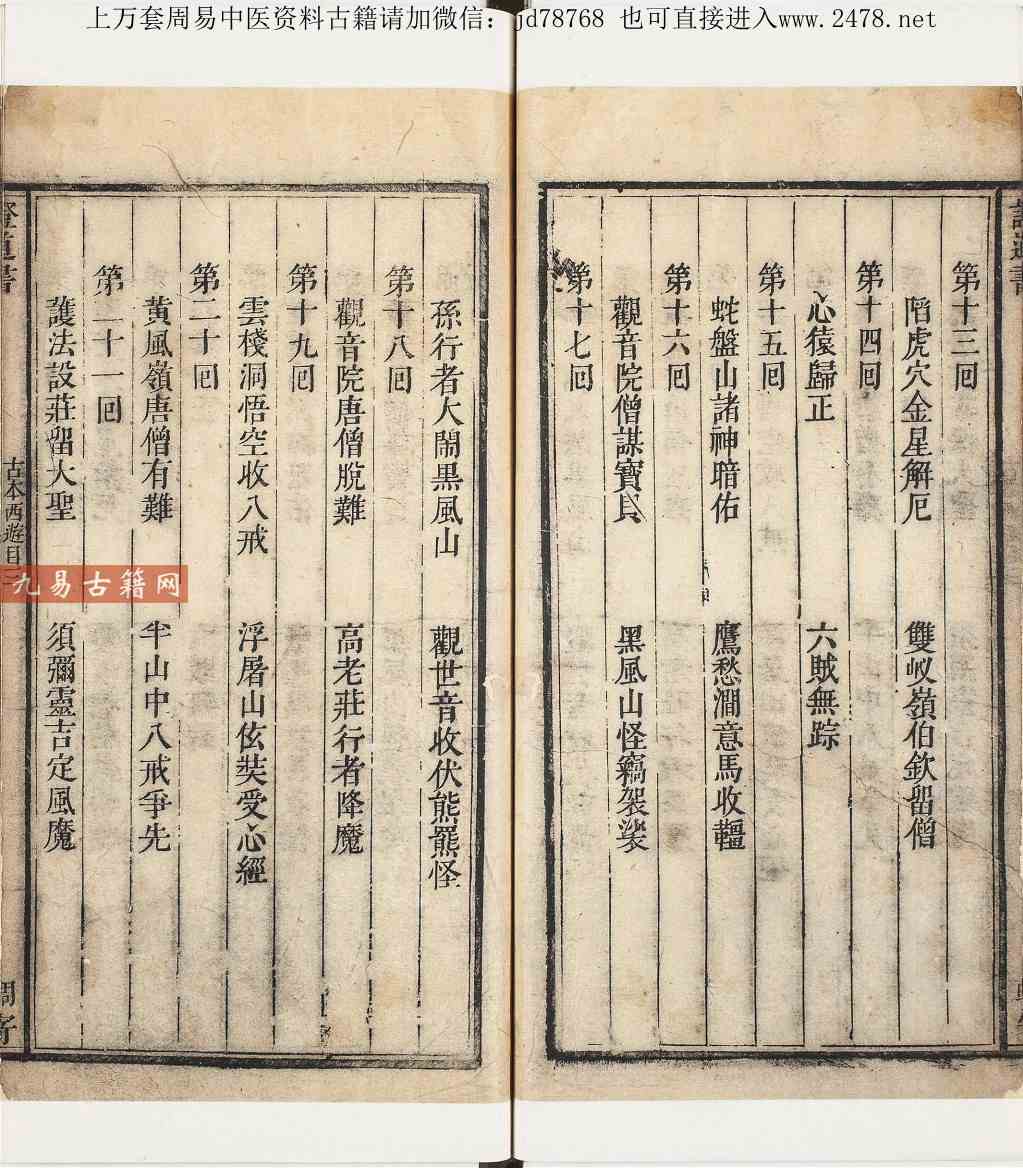 上万套周易中医资料古籍请加微信：jd78768 也可直接进入www.2478.net
第十三回
陷虎穴金星解厄 雙蚁嶺伯欽畱僧
第十四回
心猿歸正 六賊無踪
第十五回
蛇盤山諸神暗佑 鷹愁澗意馬收韁
第十六回
觀音院僧謀寶貝 黑風山怪竊袈裟
第十七回
孫行者大鬧黒風山 觀世音收伏熊羆怪
第十八回
觀音院唐僧脫難 高老莊行者降魔
第十九回
雲棧洞悟空收八戒 浮屠山伭奘受心經
第二十回
黃風嶺唐僧有難 半山中八戒爭先
第二十一回
護法設莊畱大聖 須彌靈吉定風魔
證道書
古本西遊目
九易古籍网